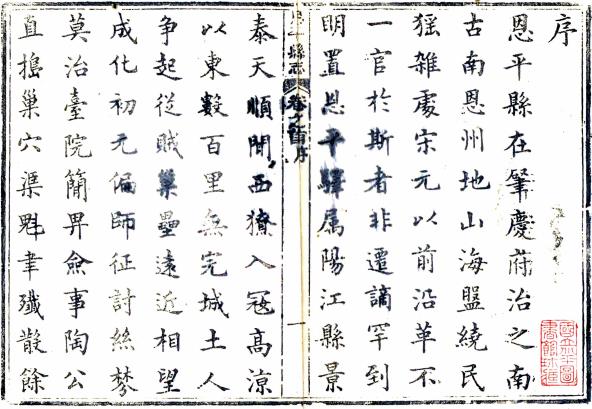 序
恩平縣在肇慶府治之南
古南恩州地山海盤繞民
猺雜處宋元以前沿革不
一官於斯者非遷謫罕到
明置恩平驛属陽江縣景
縣志 卷之首序 一
泰天順間西獠入冦髙凉
以東數百里無完城土人
争起從賊巢壘遠近相望
成化初元偏師征討絲棼
莫治臺院簡畀僉事陶公
直搗巢穴渠魁聿殲散餘